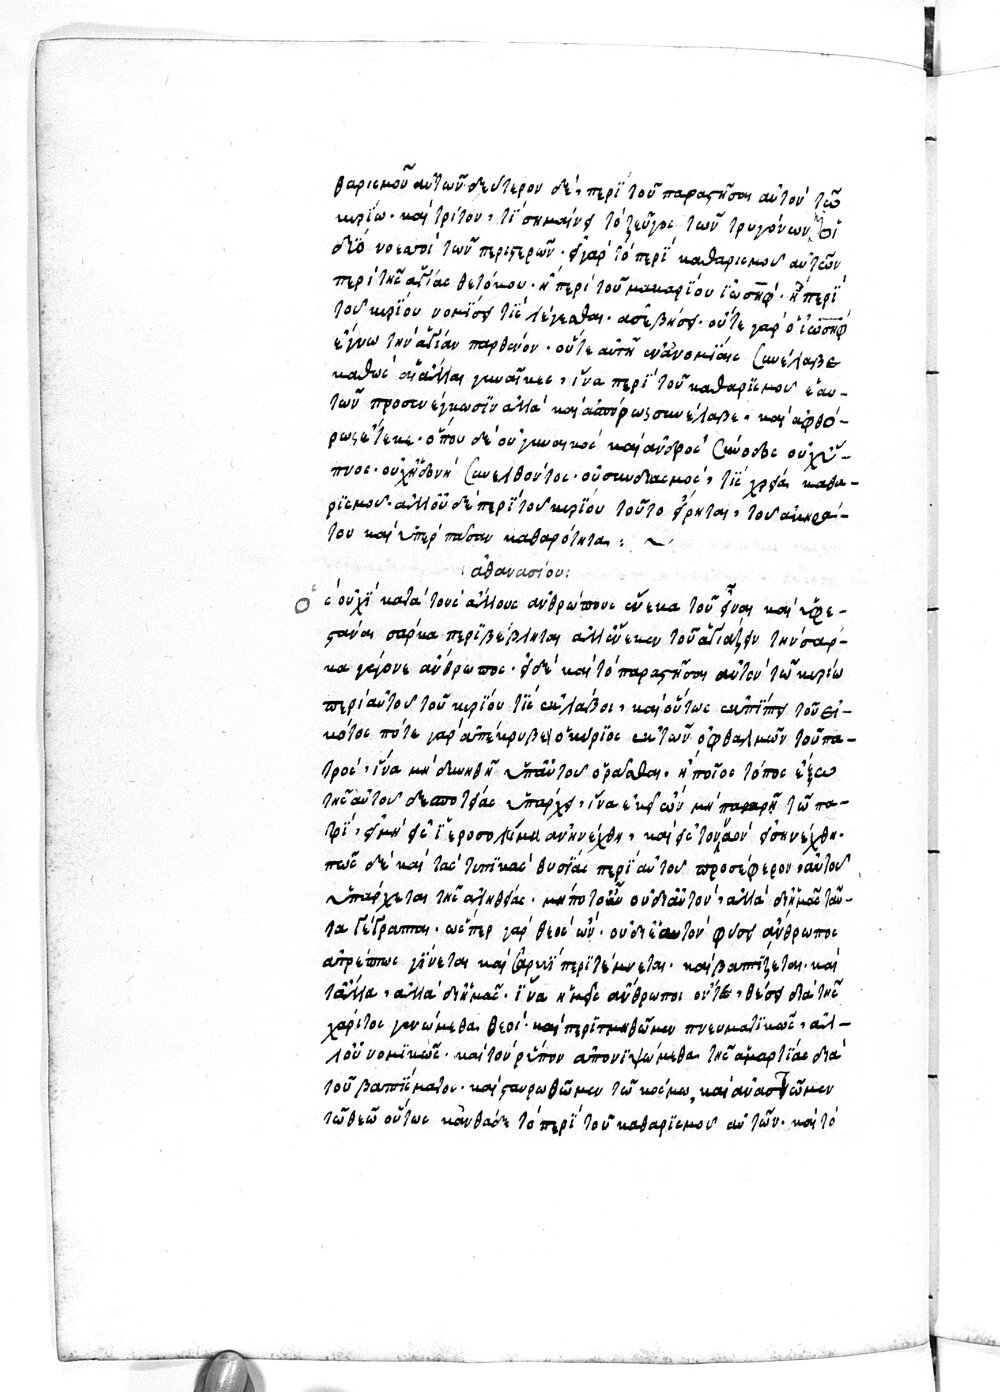 θαρισμοῦ αὐτῶν δεύτερον δὲ, περὶ τοῦ παραστῆσαι αὐτὸν τῶ
κυρίω· καὶ τρίτον, τί σημαίνει τὸ ζεῦγος τῶν τρυγόνων, οἱ
δύο νοσσοὶ τῶν περιστερῶν· εἰ γὰρ τὸ περὶ καθαρισμοῦ αὐτῶν
περὶ τῆς ἁγίας θεοτόκου· ἢ περὶ τοῦ μακαρίου ἰωσὴφ· ἢ περὶ
τοῦ κυρίου νομίσει τίς λέγεσθαι· ἀσεβήσει· οὔτε γὰρ ὁ ἰωσὴφ
ἔγνω τὴν ἁγίαν παρθένον· οὔτε αὐτὴ ἐν ἀνομίαις συνέλαβε
καθὼς αἱ ἄλλαι γυναῖκες, ἵνα περὶ τοῦ καθαρισμοῦ ἑαυ-
τῶν προσενέγκωσιν ἀλλὰ καὶ ἀσπόρως συνέλαβε, καὶ ἀφθό-
ρως ἔτεκε· ὅπου δὲ οὐ γυναικὸς καὶ ἀνδρὸς σύνοδος οὐχ ὕ-
πνος· οὐχ ἡδονὴ συνελθόντος· οὐ συνδιασμὸς, τίς χρεία καθα-
ρισμοῦ· ἀλλ' οὐδὲ περὶ τοῦ κυρίου τοῦτο εἴρηται, τοῦ ἀκηρά-
του καὶ ὑπὲρ πᾶσαν καθαρότητα: ~
: ἀθανασίου:
ὃς οὐχὶ κατὰ τοὺς ἄλλους ἀνθρώπους ἕνεκα τοῦ εἶναι καὶ ὑφε-
στάναι σάρκα περιβέβληται ἀλλ' ἕνεκεν τοῦ ἁγιάζειν τὴν σάρ-
κα γέγονε ἄνθρωπος· εἰ δὲ καὶ τὸ παραστῆσαι αὐτὸν τῶ κυρίω
περὶ αὐτοῦ τοῦ κυρίου τίς ἐκλάβοι, καὶ οὕτως ἐκπίπτει τοῦ εἰ-
κότος πότε γὰρ ἀπεκρύβει ὁ κύριος ἐκ τῶν ὀφθαλμῶν τοῦ πα-
τρὸς, ἵνα μὴ δυνηθῆ ὑπ' αὐτοῦ ὁρᾶσθαι· ἢ ποῖος τόπος ἔξω
τῆς αὐτοῦ δεσποτείας ὑπάρχει, ἵνα ἐκεῖ ὢν μὴ παραρῆ τῶ πα-
τρὶ, εἰ μὴ εἰς ἱεροσόλυμα ἀνηνέχθη, καὶ εἰς τὸν ναὸν εἰσηνέχθη·
πῶς δὲ καὶ τὰς τυπικὰς θυσίας περὶ αὐτοῦ προσέφερον, αὐτοῦ
ὑπάρχεται τῆς ἀληθείας· μήποτ' οὖν οὐ δι' αὐτὸν, ἀλλὰ δι' ἡμᾶς ταῦ-
τα γέγραπται· ὥσπερ γὰρ θεὸς ὢν· οὐ δι' ἑαυτὸν φύσει ἄνθρωπος
ἀτρέπτως γίνεται καὶ σαρκὶ περιτέμνεται· καὶ βαπτίζεται· καὶ
τἄλλα, ἀλλὰ δι' ἡμᾶς· ἵνα ἡμεῖς ἄνθρωποι ὄντες, θέσει διὰ τῆς
χάριτος γενώμεθα θεοὶ· καὶ περιτμηθῶμεν πνευματικῶς, ἀλ-
λ' οὐ νομικῶς· καὶ τὸν ῥύπον ἀπονιψώμεθα τῆς ἁμαρτίας διὰ
τοῦ βαπτίσματος· καὶ σταυρωθῶμεν τῶ κόσμω, καὶ ἀναστῶμεν
τῶ θεῶ οὕτως κἀνθάδε τὸ περὶ τοῦ καθαρισμοῦ αὐτῶν· καὶ τὸ